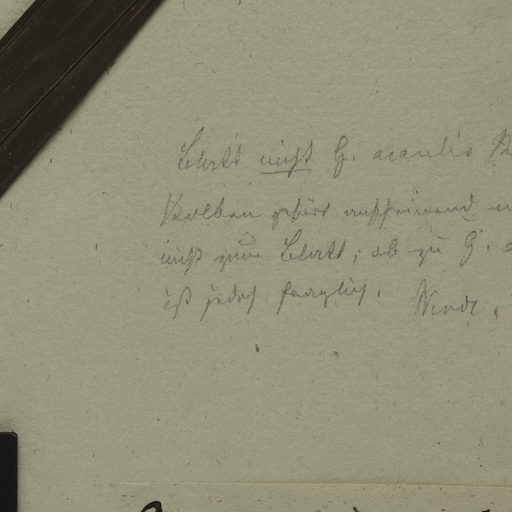 Blatt nicht G. acaulis
Kolben gehört anscheinend
nicht zum Blatt; ob zu G.
ist jedoch fraglich.